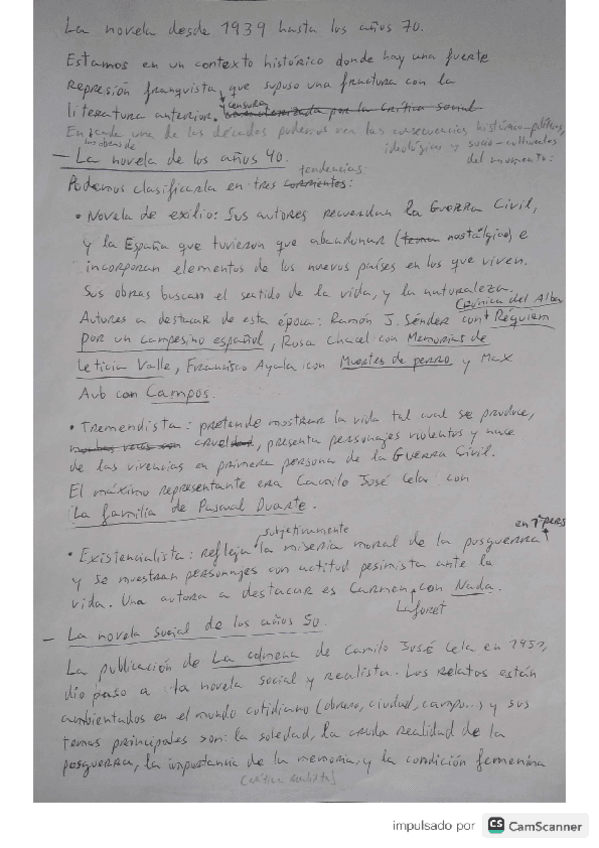 La novela desde 1939 hasta los años 70.
Estamos en un contexto histórico donde hay una fuerte
represión franquista, que supuso una fractura con la
censura
literatura anterior. caracterizada por la crítica social
En cada una de las décadas podemos ver las consecuencias histórico-políticas,
ideológicas y socio-culturales
del momento:
- La novela de los años 40.
tendencias
Podemos clasificarla en tres corrientes:
• Novela de exilio: Sus autores recuerdan la Guerra Civil,
y la España que tuvieron que abandonar (tema nostálgico) e
incorporan elementos de los nuevos países en los que viven.
Sus obras buscan el sentido de la vida, y la naturaleza.
Crónica del Alba
Autores a destacar de esta época: Ramón J. Sénder con Réquiem
por un campesino español, Rosa Chacel con Memorias de
Leticia Valle, Francisco Ayala con Muertes de perro y Max
Aub con Campos.
• Tremendista: pretende mostrar la vida tal cual se produce,
muchas veces con crueldad, presenta personajes violentos y nace
de las vivencias en primera persona de la Guerra Civil.
El máximo representante era Camilo José Cela con
La familia de Pascual Duarte.
subjetivamente
en 1ª pers
• Existencialista: refleja la miseria moral de la posguerra
y se muestran personajes con actitud pesimista ante la
vida. Una autora a destacar es Carmen con Nada.
Laforet
- La novela social de los años 50.
La publicación de La colmena de Camilo José Cela en 1951,
dio paso a la novela social y realista. Los relatos están
ambientados en el mundo cotidiano (obrero, ciudad, campo...) y sus
temas principales son: la soledad, la cruda realidad de la
posguerra, la importancia de la memoria, y la condición femenina
impulsado por CS CamScanner